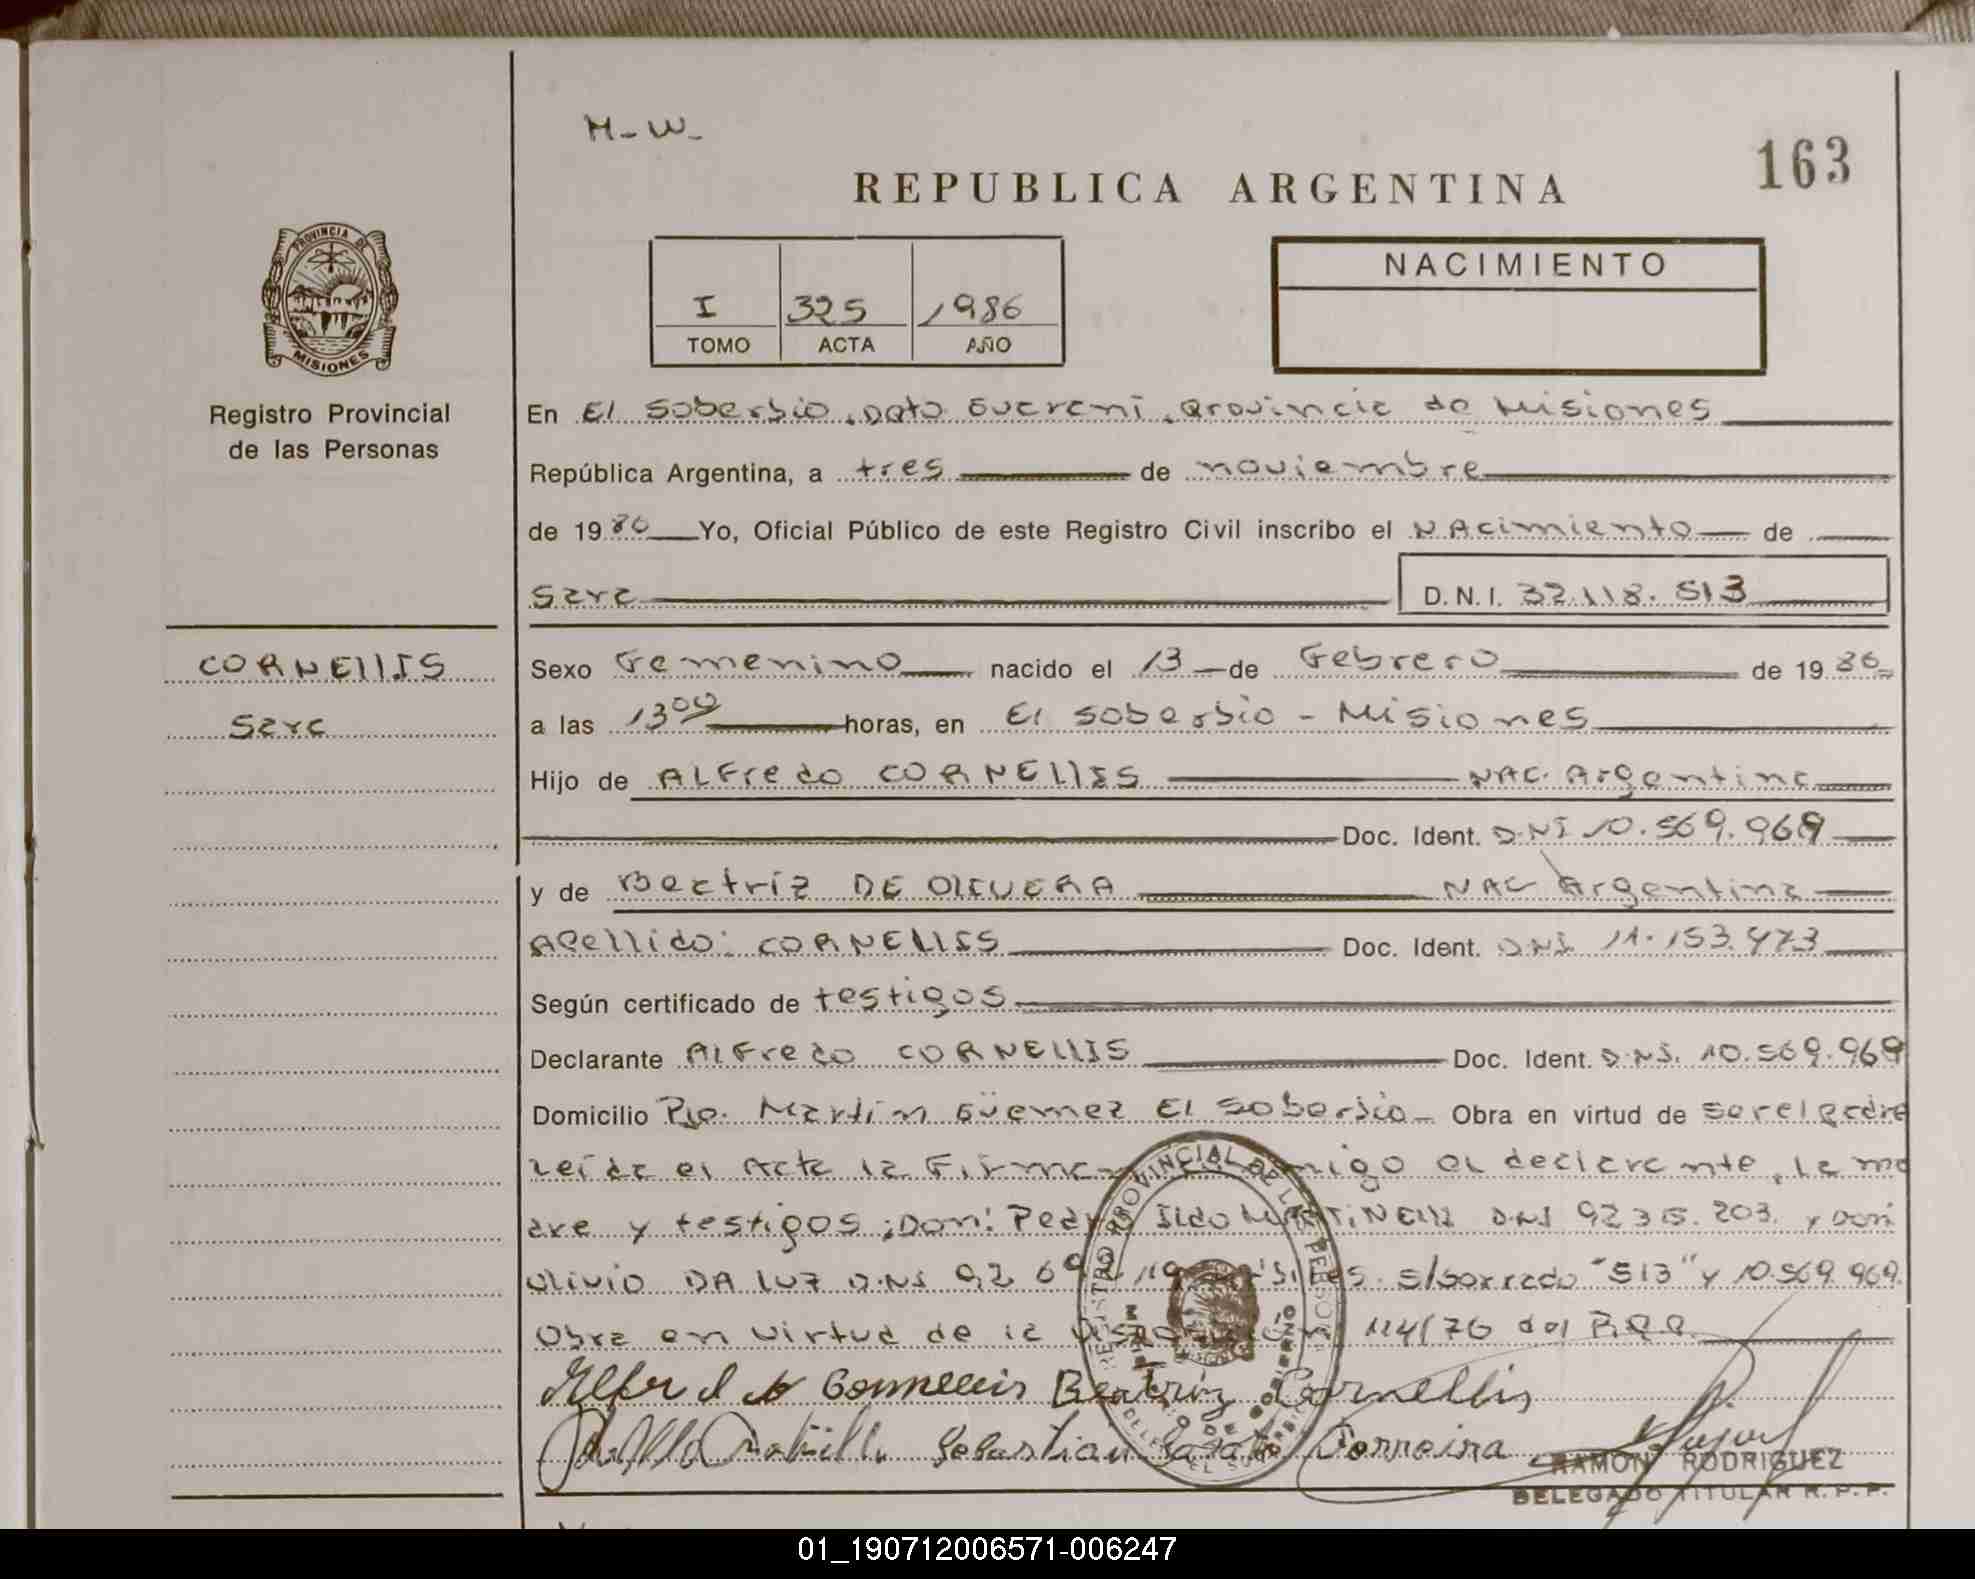 H-W-
163
REPUBLICA ARGENTINA
PROVINCIA DE
MISIONES
I 325 1986
TOMO ACTA AÑO
NACIMIENTO
Registro Provincial
de las Personas
En El Soberbio, Dpto Guarani, Provincia de Misiones
República Argentina, a tres de noviembre
de 1986 Yo, Oficial Público de este Registro Civil inscribo el NAcimiento de
Sara D.N.I. 32.118.513
CORNELLIS
Sara
Sexo Femenino nacido el 13 de Febrero de 1986
a las 13 00 horas, en El Soberbio - Misiones
Hijo de ALFredo CORNELLIS NAC. Argentina
Doc. Ident. D.NI 10.569.969
y de Beatriz DE OLIVERA NAC Argentina
Apellido: CORNELLIS Doc. Ident. DNI 11.153.473
Según certificado de testigos
Declarante ALFredo CORNELLIS Doc. Ident. D.NI. 10.569.969
Domicilio Pje. Martin Güemez El Soberbio - Obra en virtud de ser el padre
Leída el Acta la Firman el declarante, la ma
dre y testigos; Don: Pedro Ildo MARTINELLI DNI 92.315.203. y Don:
Olivio DA LUZ D.NI 92 S/borrado "513" y 10.569.969.
Obra en virtud de la Disposición 114/76 del R.P.P.
Alfredo Cornellis Beatriz Cornellis
Sebastian Ferreira
REGISTRO PROVINCIAL DE LAS PERSONAS
RAMON RODRIGUEZ
DELEGADO TITULAR R.P.P.
01_190712006571-006247